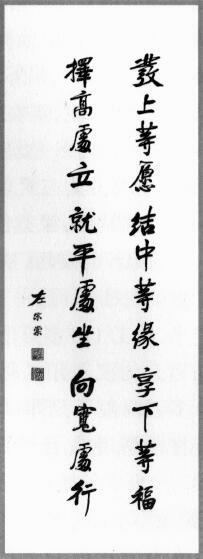 發上等愿結中等緣享下等福
擇高處立就平處坐向寬處行
左宗棠